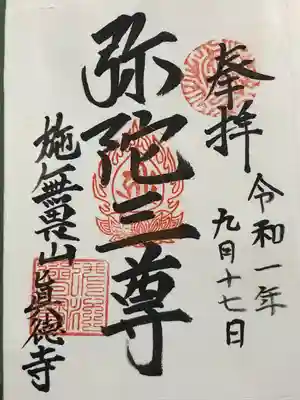 奉拝
令和一年
九月十七日
弥陀三尊
施無畏山
眞徳寺